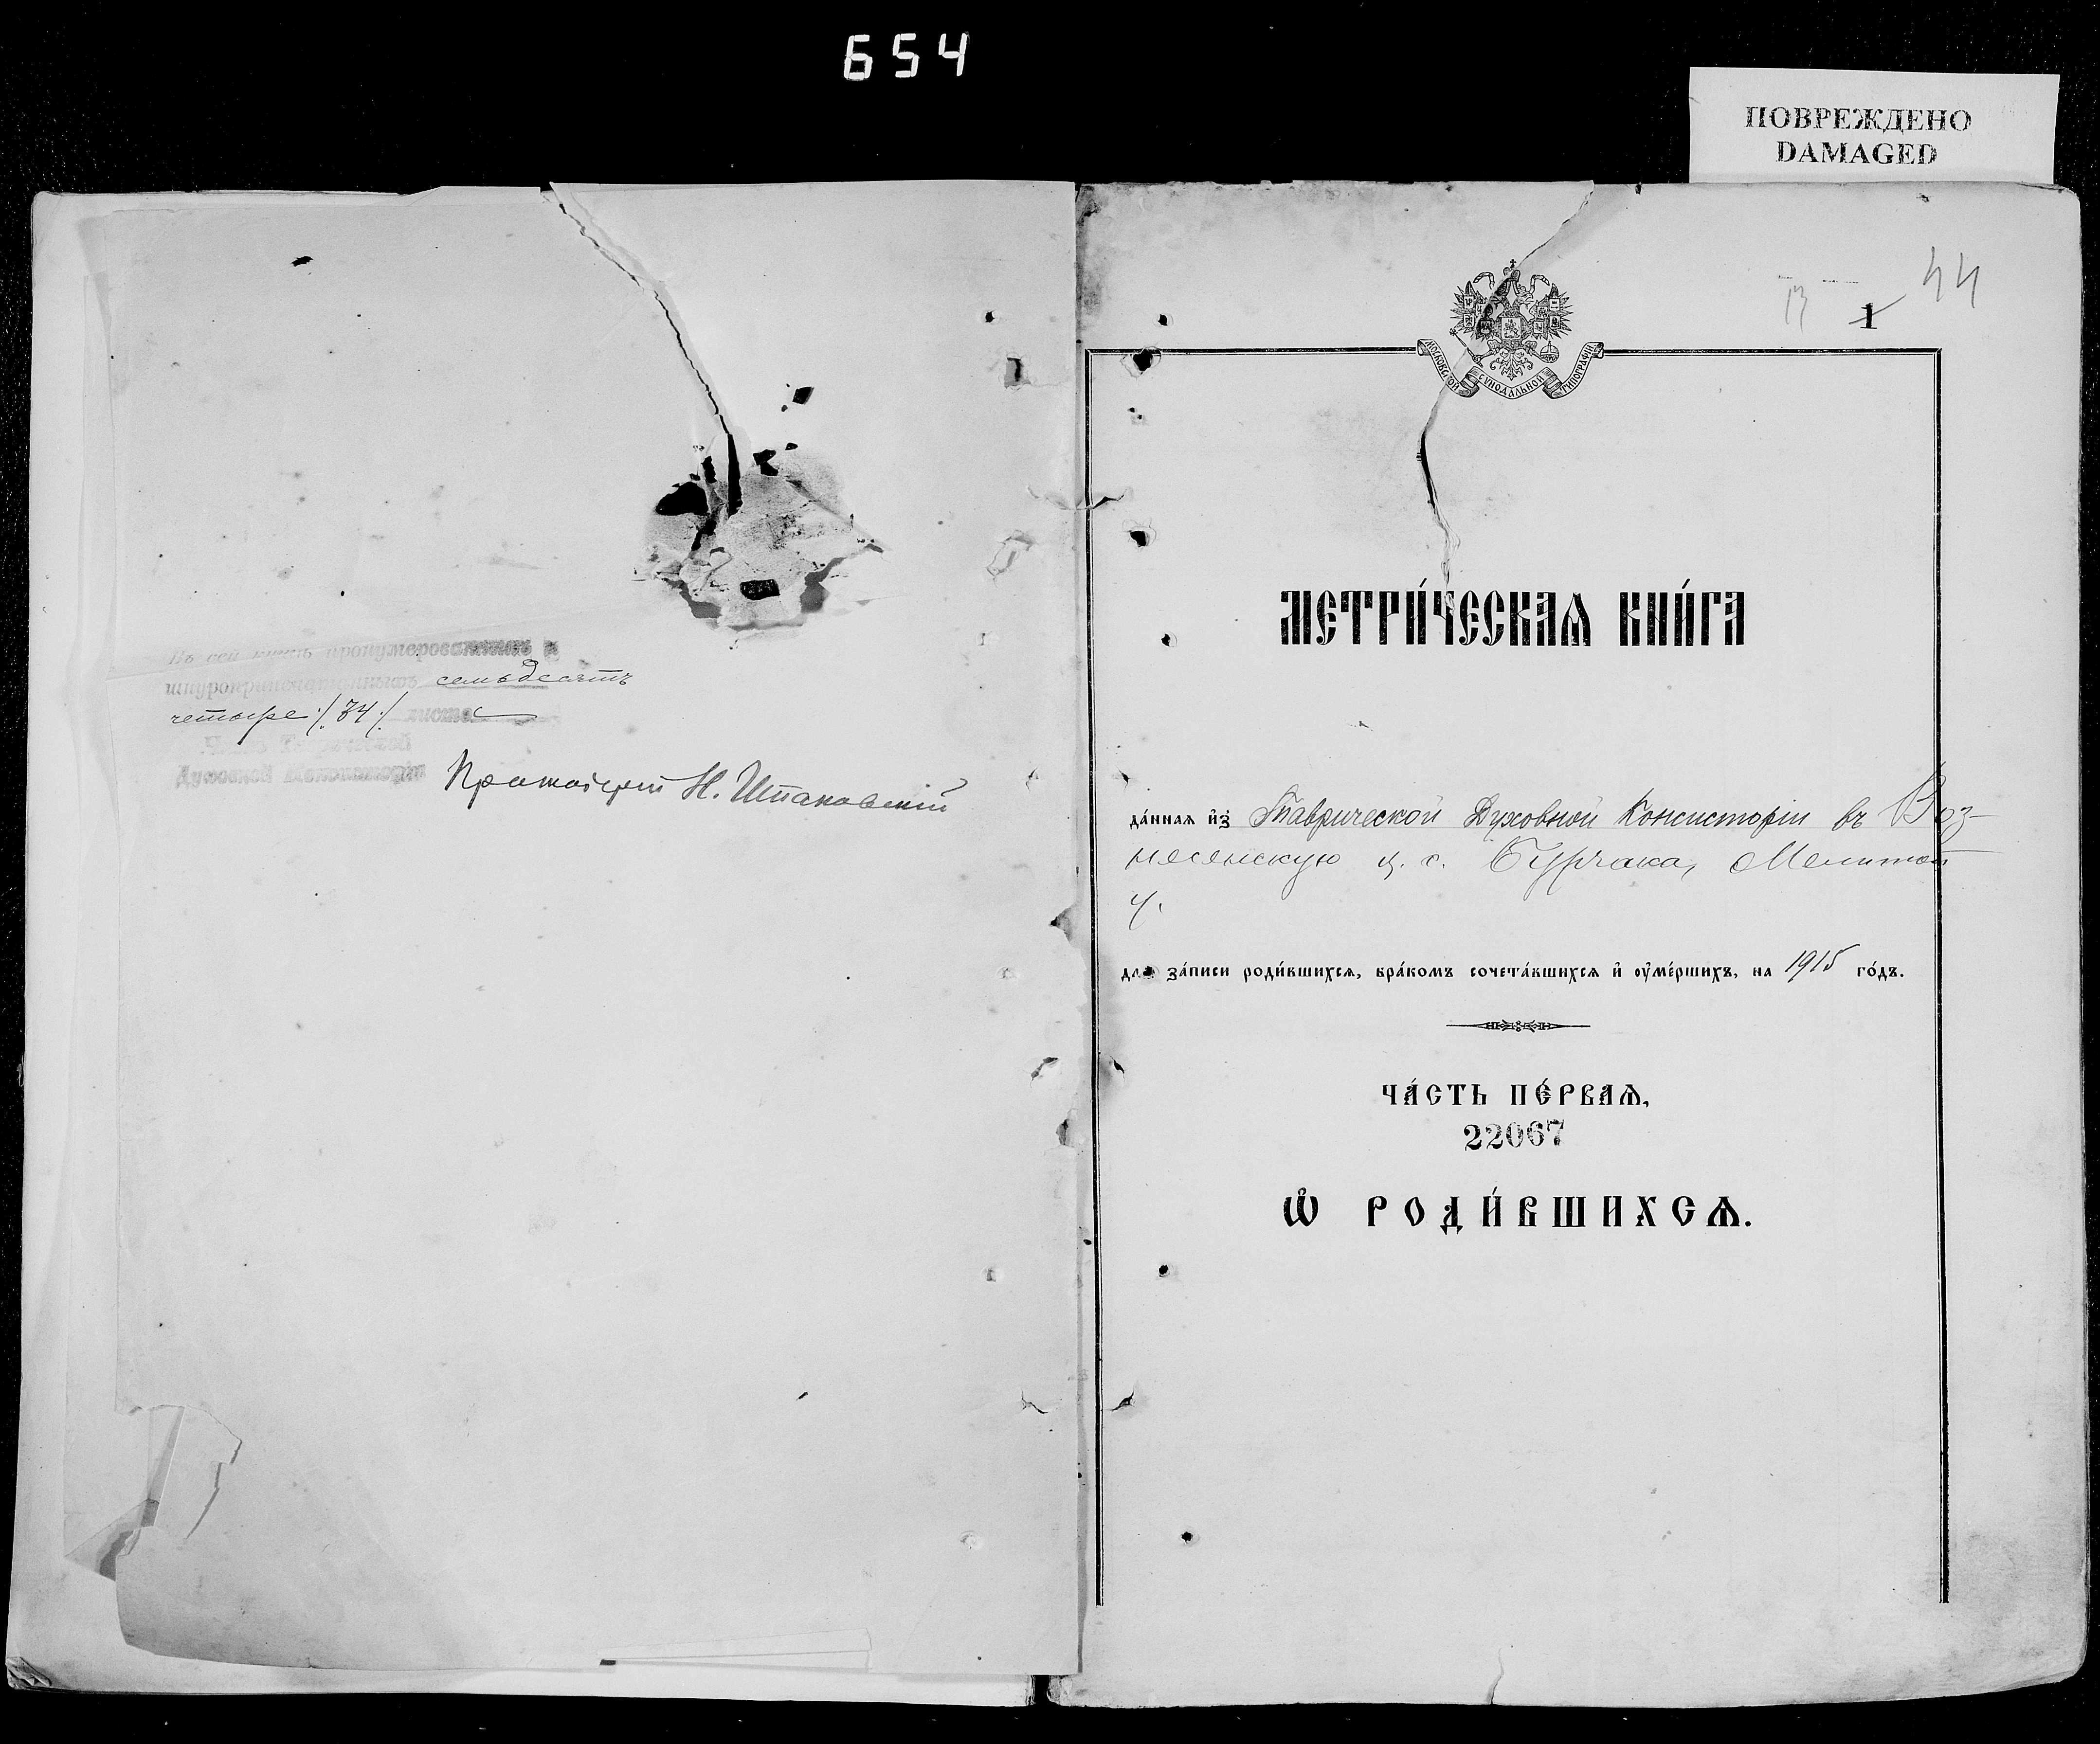 654
ПОВРЕЖДЕНО
DAMAGED
Въ сей книгѣ пронумерованныхъ и
шнуроприпечатанныхъ семьдесятъ
четыре /74/ листа
Членъ Таврической
Духовной Консисторіи Протоіерей Н. Шпаковскій
44
13 1
МОСКОВСКОЙ СѴНОДАЛЬНОЙ ТИПОГРАФІИ
МЕТРИ́ЧЕСКАѦ КНИ́ГА
да́ннаѧ и҆з̾ Таврической Духовной Консисторіи въ Воз-
несенскую ц. с. Бурчака, Мелитоп.
у.
для за́писи роди́вшихсѧ, бра́комъ сочета́вшихсѧ и҆ ᲂу҆ме́ршихъ, на 1915 го́дъ.
ЧА́СТЬ ПЕ́РВАѦ,
22067
Ѡ҆ РОДИ́ВШИХСѦ.